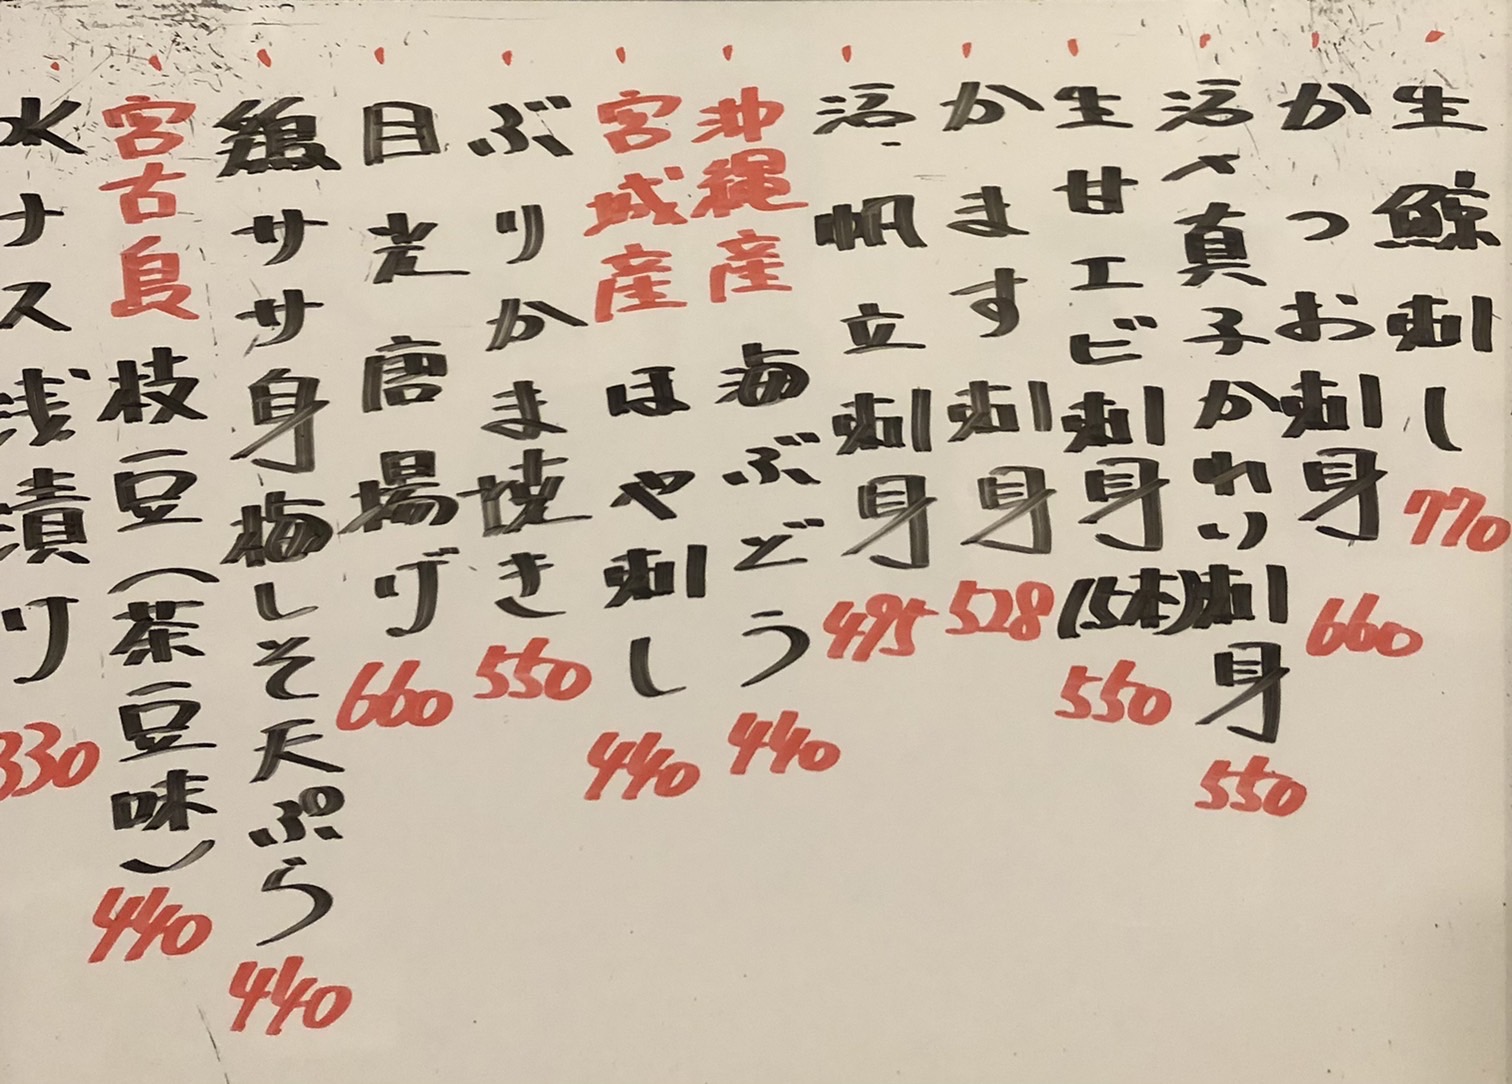 生鯨刺し 770
かつお刺身 660
活〆真子かれい刺身 550
生甘エビ刺身(5本) 550
かます刺身 528
活帆立刺身 495
沖縄産 海ぶどう 440
宮城産 ほや刺し 440
ぶりかま焼き 550
目光唐揚げ 660
鶏ササ身梅しそ天ぷら 440
宮古島 枝豆(茶豆味) 440
水ナス浅漬け 330